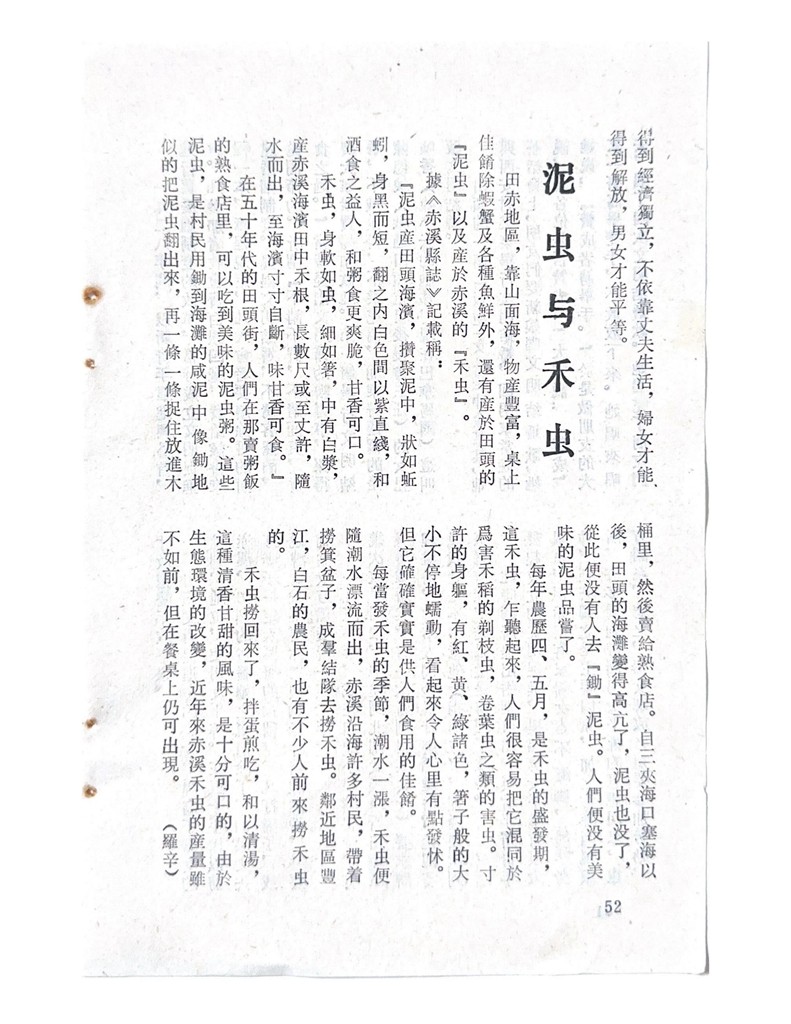 得到經濟獨立，不依靠丈夫生活，婦女才能
得到解放，男女才能平等。
泥虫与禾虫
田赤地區，靠山面海，物産豐富，桌上
佳餚除蝦蟹及各種魚鮮外，還有産於田頭的
『泥虫』以及産於赤溪的『禾虫』。
據《赤溪縣誌》記載稱：
『泥虫産田頭海濱，攢聚泥中，狀如蚯
蚓，身黑而短，翻之内白色間以紫直綫，和
酒食之益人，和粥食更爽脆，甘香可口。
禾虫，身軟如虫，細如箸，中有白漿，
産赤溪海濱田中禾根，長數尺或至丈許，隨
水而出，至海濱寸寸自斷，味甘香可食。』
在五十年代的田頭街，人們在那賣粥飯
的熟食店里，可以吃到美味的泥虫粥。這些
泥虫，是村民用鋤到海灘的咸泥中像鋤地
似的把泥虫翻出來，再一條一條捉住放進木
桶里，然後賣給熟食店。自三夾海口塞海以
後，田頭的海灘變得高亢了，泥虫也没了，
從此便没有人去『鋤』泥虫。人們便没有美
味的泥虫品嘗了。
每年農歷四、五月，是禾虫的盛發期，
這禾虫，乍聽起來，人們很容易把它混同於
爲害禾稻的剃枝虫，卷葉虫之類的害虫。寸
許的身軀，有紅、黄、綠諸色，箸子般的大
小不停地蠕動，看起來令人心里有點發怵。
但它確確實實是供人們食用的佳餚。
每當發禾虫的季節，潮水一漲，禾虫便
隨潮水漂流而出，赤溪沿海許多村民，帶着
撈箕盆子，成羣結隊去撈禾虫。鄰近地區豐
江，白石的農民，也有不少人前來撈禾虫
的。
禾虫撈回來了，拌蛋煎吃，和以清湯，
這種清香甘甜的風味，是十分可口的，由於
生態環境的改變，近年來赤溪禾虫的産量雖
不如前，但在餐桌上仍可出現。
（羅辛）
52